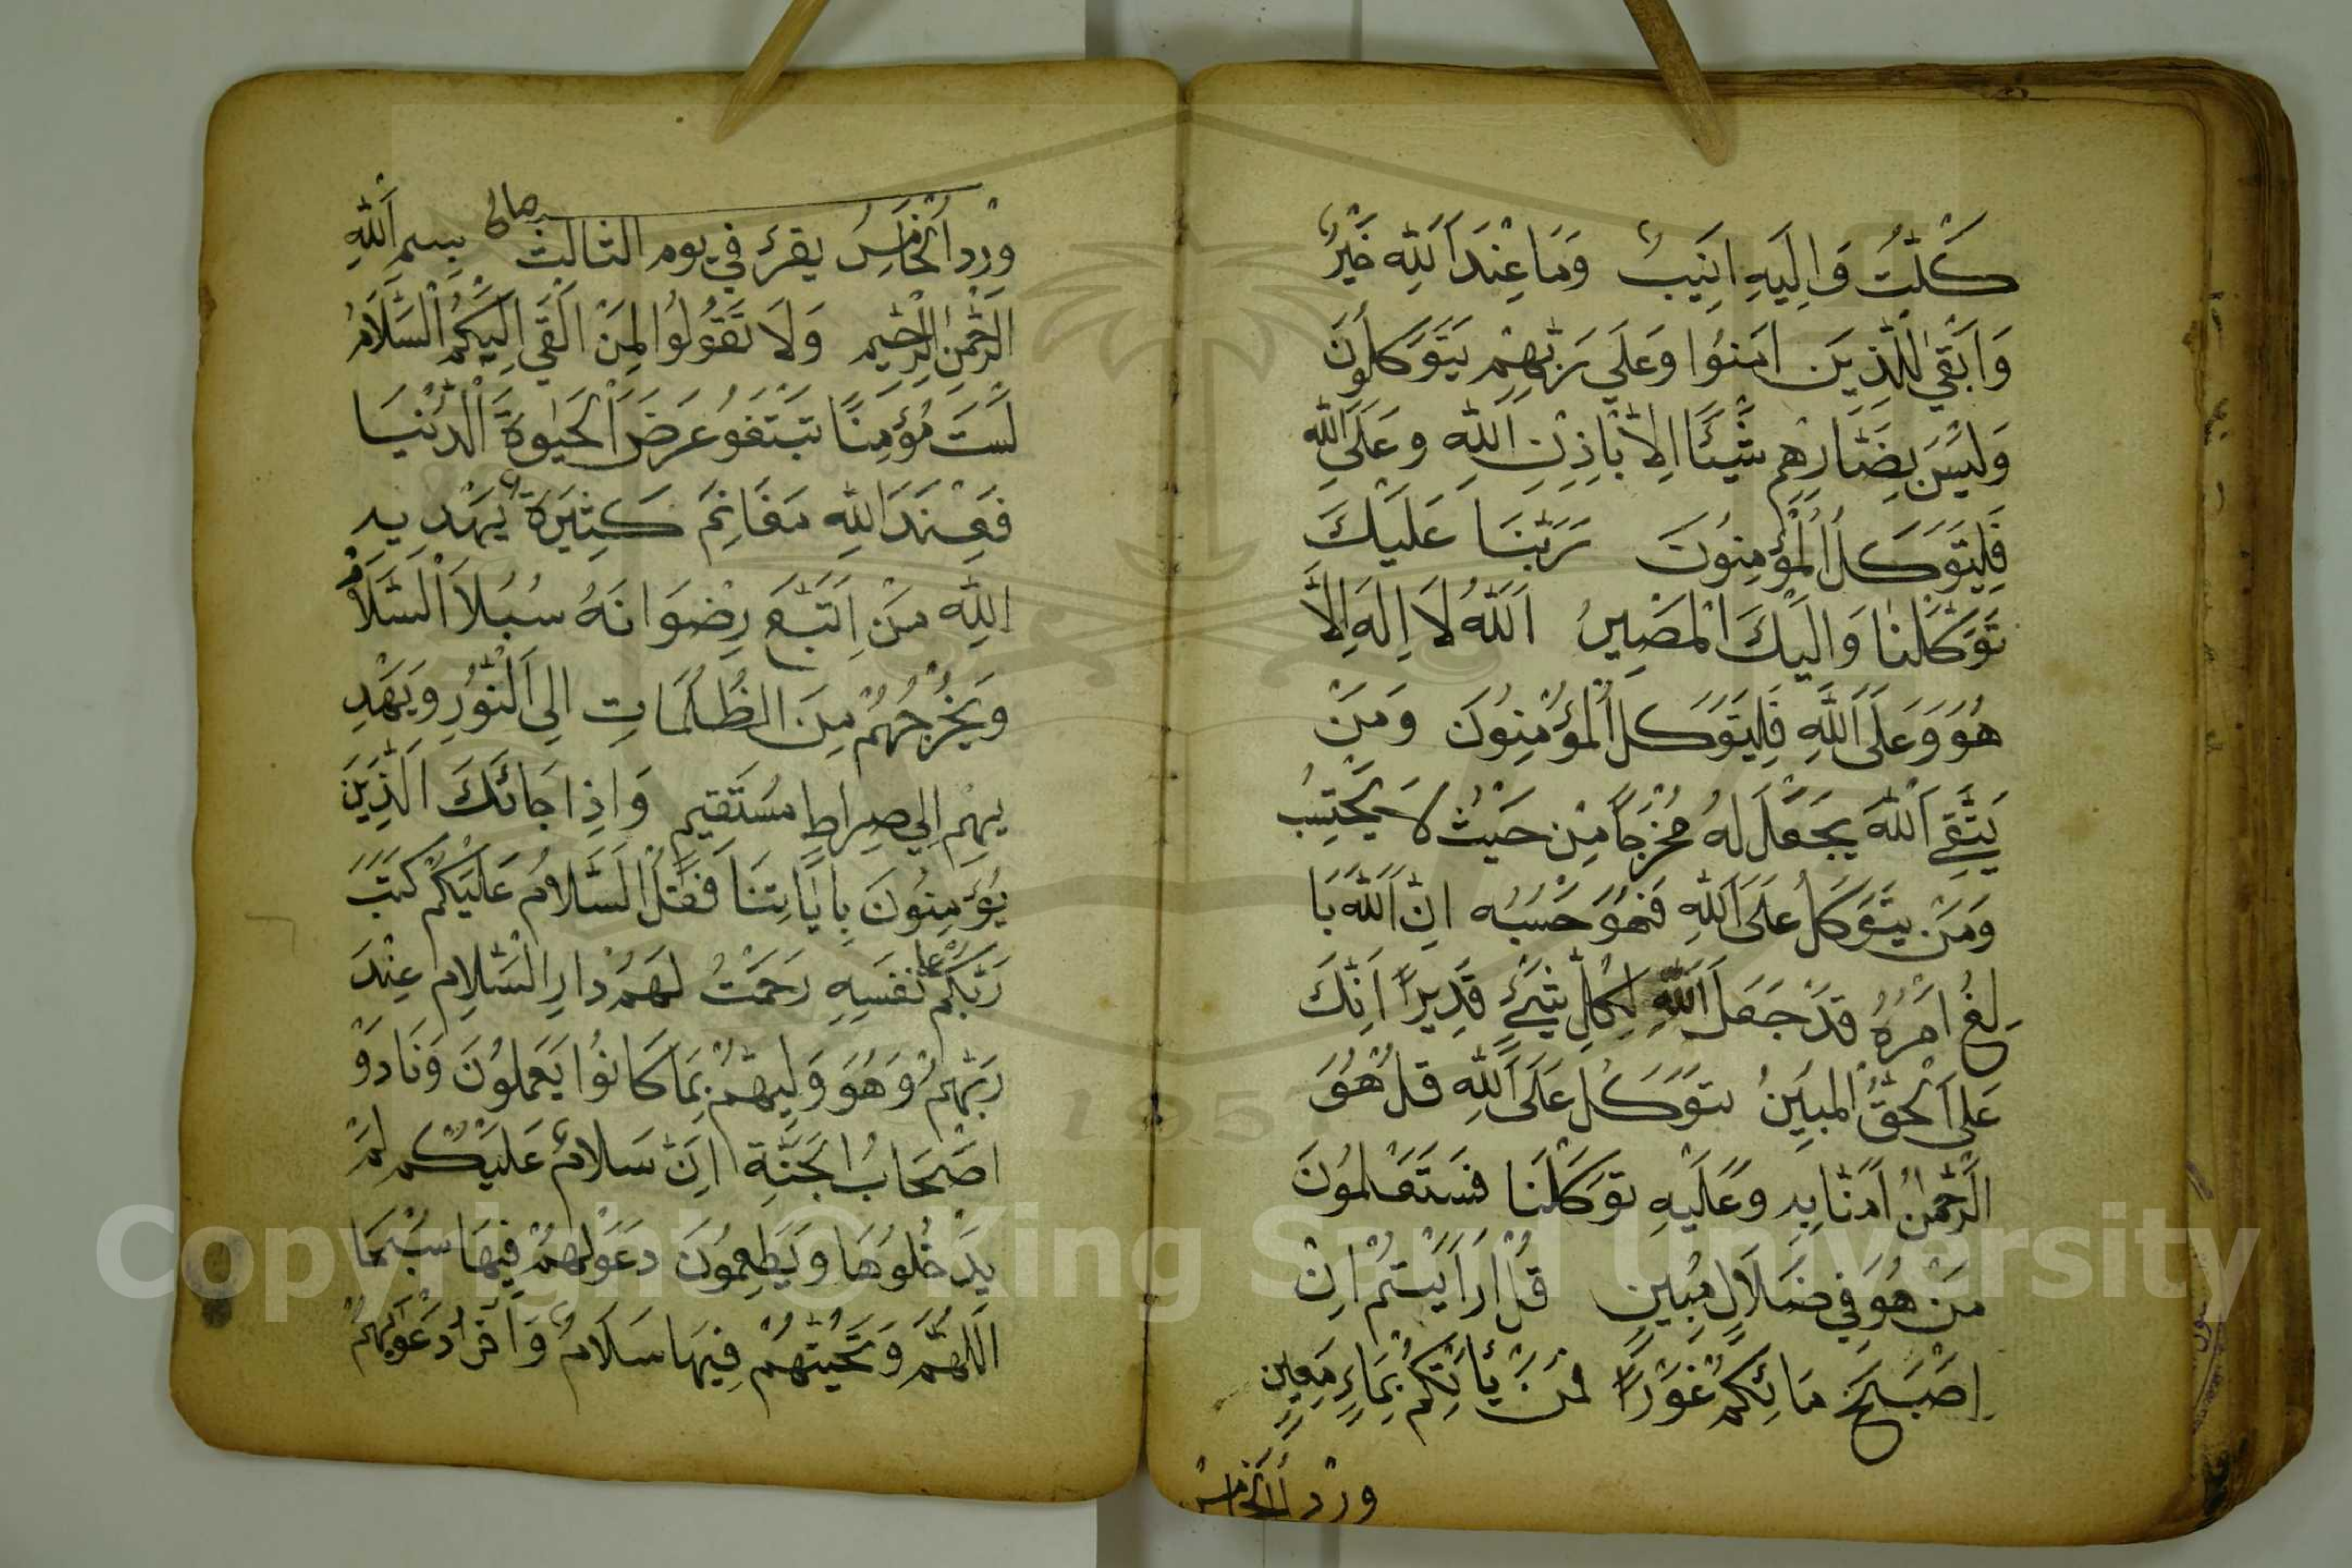 كَلْتُ وَاِلَيْهِ اُنِيْبُ وَمَا عِنْدَ اللّٰهِ خَيْرٌ
وَاَبْقٰي لِلَّذِيْنَ اٰمَنُوا وَعَلَي رَبِّهِمْ يَتَوَكَلُونَ
وَلَيْسَ بِضَارِّهِمْ شَيْئًا اِلاَّ بِاِذْنِ اللّٰهِ وعَلَي اللّٰهِ
فَلْيَتَوَكَلِ الْمُؤْمِنُونَ رَبَّنَا عَلَيْكَ
تَوَكَّلْنَا وَاِلَيْكَ الْمَصِيرُ اَللّٰهُ لاَ اِلَهَ اِلاَّ
هُوَ وَعَلَي اللّٰهِ فَلْيَتَوَكَلِ الْمُؤْمِنُونَ وَمَنْ
يَتَّقِي اللّٰهَ يَجْعَلْ لَهُ مَخْرَجًا مِنْ حَيْثُ لاَ يَحْتَسِبُ
وَمَنْ يَتَوَكَلْ عَلَي اللّٰهِ فَهُوَ حَسْبُه اِنَّ اللّٰهَ بَا
لِغُ اَمْرُهُ قَدْ جَعَلَ اللّٰهِ لِكُلِّ شَيْءٍ قَدِيرًا اِنَّكَ
عَلَي الْحَقُّ الْمُبِيْنُ تَوَكَلْ عَلَي اللّٰهِ قُلْ هُوَ
الرَّحْمٰنُ اٰمَنَّا بِهِ وعَلَيْهِ تَوَكَلْنَا فَسَتَعْلَمُونَ
مَنْ هُوَ فِي ضَلاَلٍ مُبِيْنٍ قُلْ اَرَاَيْتُمْ اِنْ
اَصْبَحَ مَائِكُمْ غَوْرًا فَمَنْ يَأْتِكُمْ بِمَاءٍ مَعِيْنٍ
وِرْدُ الْخَامِسْ
وِرْدُ الْخَامِسُ يقرئ في يوم الثالث بِسمِ اللّٰهِ
الرَّحْمٰنِ الرَّحِيْمِ وَلاَ تَقُولُوا لِمَنْ اَلْقَي اِلَيْكُمُ السَّلاَمُ
لَسْتَ مُؤْمِنًا تَبْتَغُو عَرَضَ الْحَيٰوةِ الدُّنْيَا
فَعِنْدَ اللّٰهِ مَغَانِمَ كَثِيْرَةٌ يَهْدِ بِهِ
اللّٰهِ مَنْ اِتَّبَعَ رِضْوَانَهُ سُبُلاَ السَّلاَمْ
وَيُخْرِجُهُمْ مِنَ الظُلُمَاتِ اِلَي النُّورِ وَيَهْدِ
يِهِمْ اِلَي صِراطٍ مُسْتَقِيْمٍ وَاِذَا جَائَكَ الَّذِيْنَ
يُؤْمِنُونَ بِايَاتِنَا فَقُلِ السَّلاَمُ عَلَيْكُمْ كَتَبَ
رَبُّكُمْ عَلَى نَفْسِهِ رَحْمَتُ لَهُمْ دَارِ السَّلاِمِ عِنْدَ
رَبِّهِمْ وَهُوَ وَلِيُهُمْ بِمَا كَانُوا يَعْمَلُونَ وَنَادَوْ
اصْحَابُ الجَنَّةِ اِنَّ سَلاَمٌ عَلَيْكُمْ لَمْ
يَدْخُلُوهَا وَيَطْعِمُونَ دَعَوٰلهُمْ فِيْهَا سُبْحَا
اَللّٰهُمَّ وَتَحِيَتُهُمْ فِيْهَا سَلاَمٌ وَاٰخَرُ دَعْوَيٰهُمْ
Copyright © King Saud University
1957